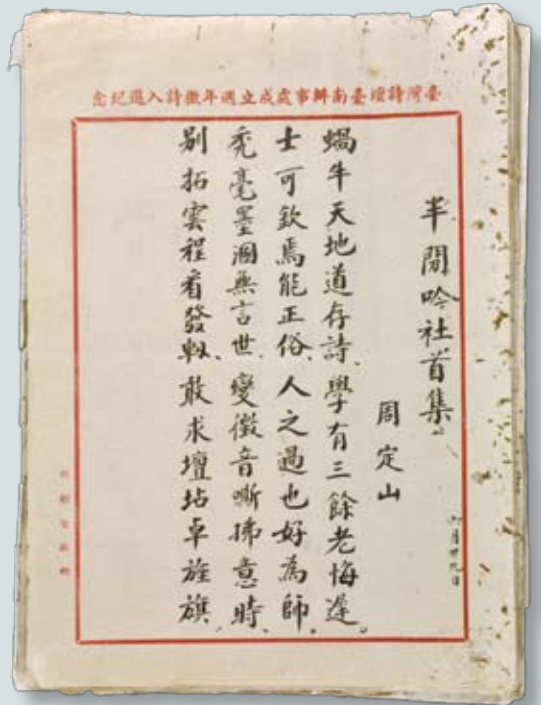 臺灣詩壇臺南辦事處成立週年徵詩入選紀念
半閒吟社首集
六月廿九日
周定山
蝸牛天地道存詩、學有三餘老悔遲。
士可欽焉能正俗、人之過也好為師。
禿毫墨涸無言世、變徵音嘶拂意時、
別拓雲程看發軔、敢求壇坫卓旌旗、